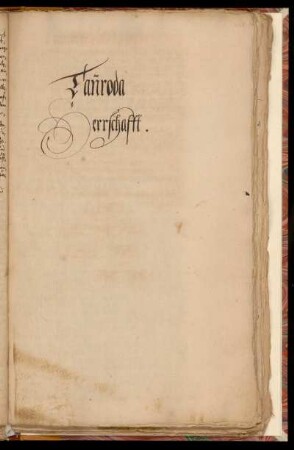 Taũroda
Herrschafft.